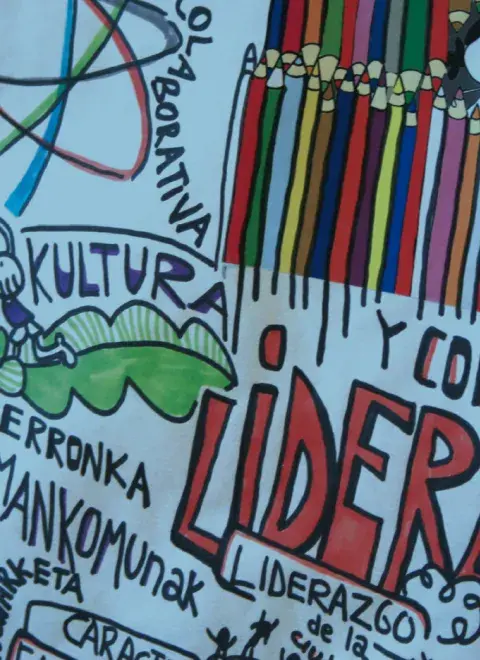 COLABORATIVA
KULTURA
Y CO
LIDER
ERRONKA
MANKOMUNAK
LIDERAZGO
de la